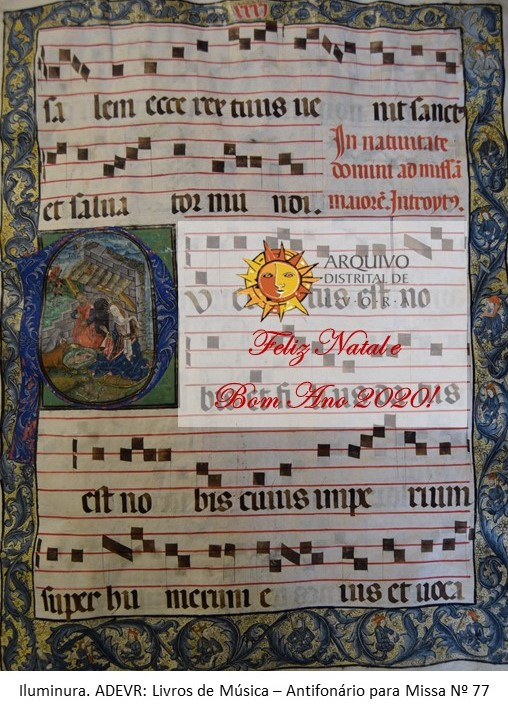 sa lem ecce rex tuus ue nit sanct
et salua tor mu ndi.
In natiuitate
domini ad missā
maiorē. Introytꝰ.
ARQUIVO
DISTRITAL DE
tus est no
Feliz Natal e
Bom Ano 2020!
est no bis cuius impe rium
super hu merum e ius et uoca
Iluminura. ADEVR: Livros de Música – Antifonário para Missa Nº 77